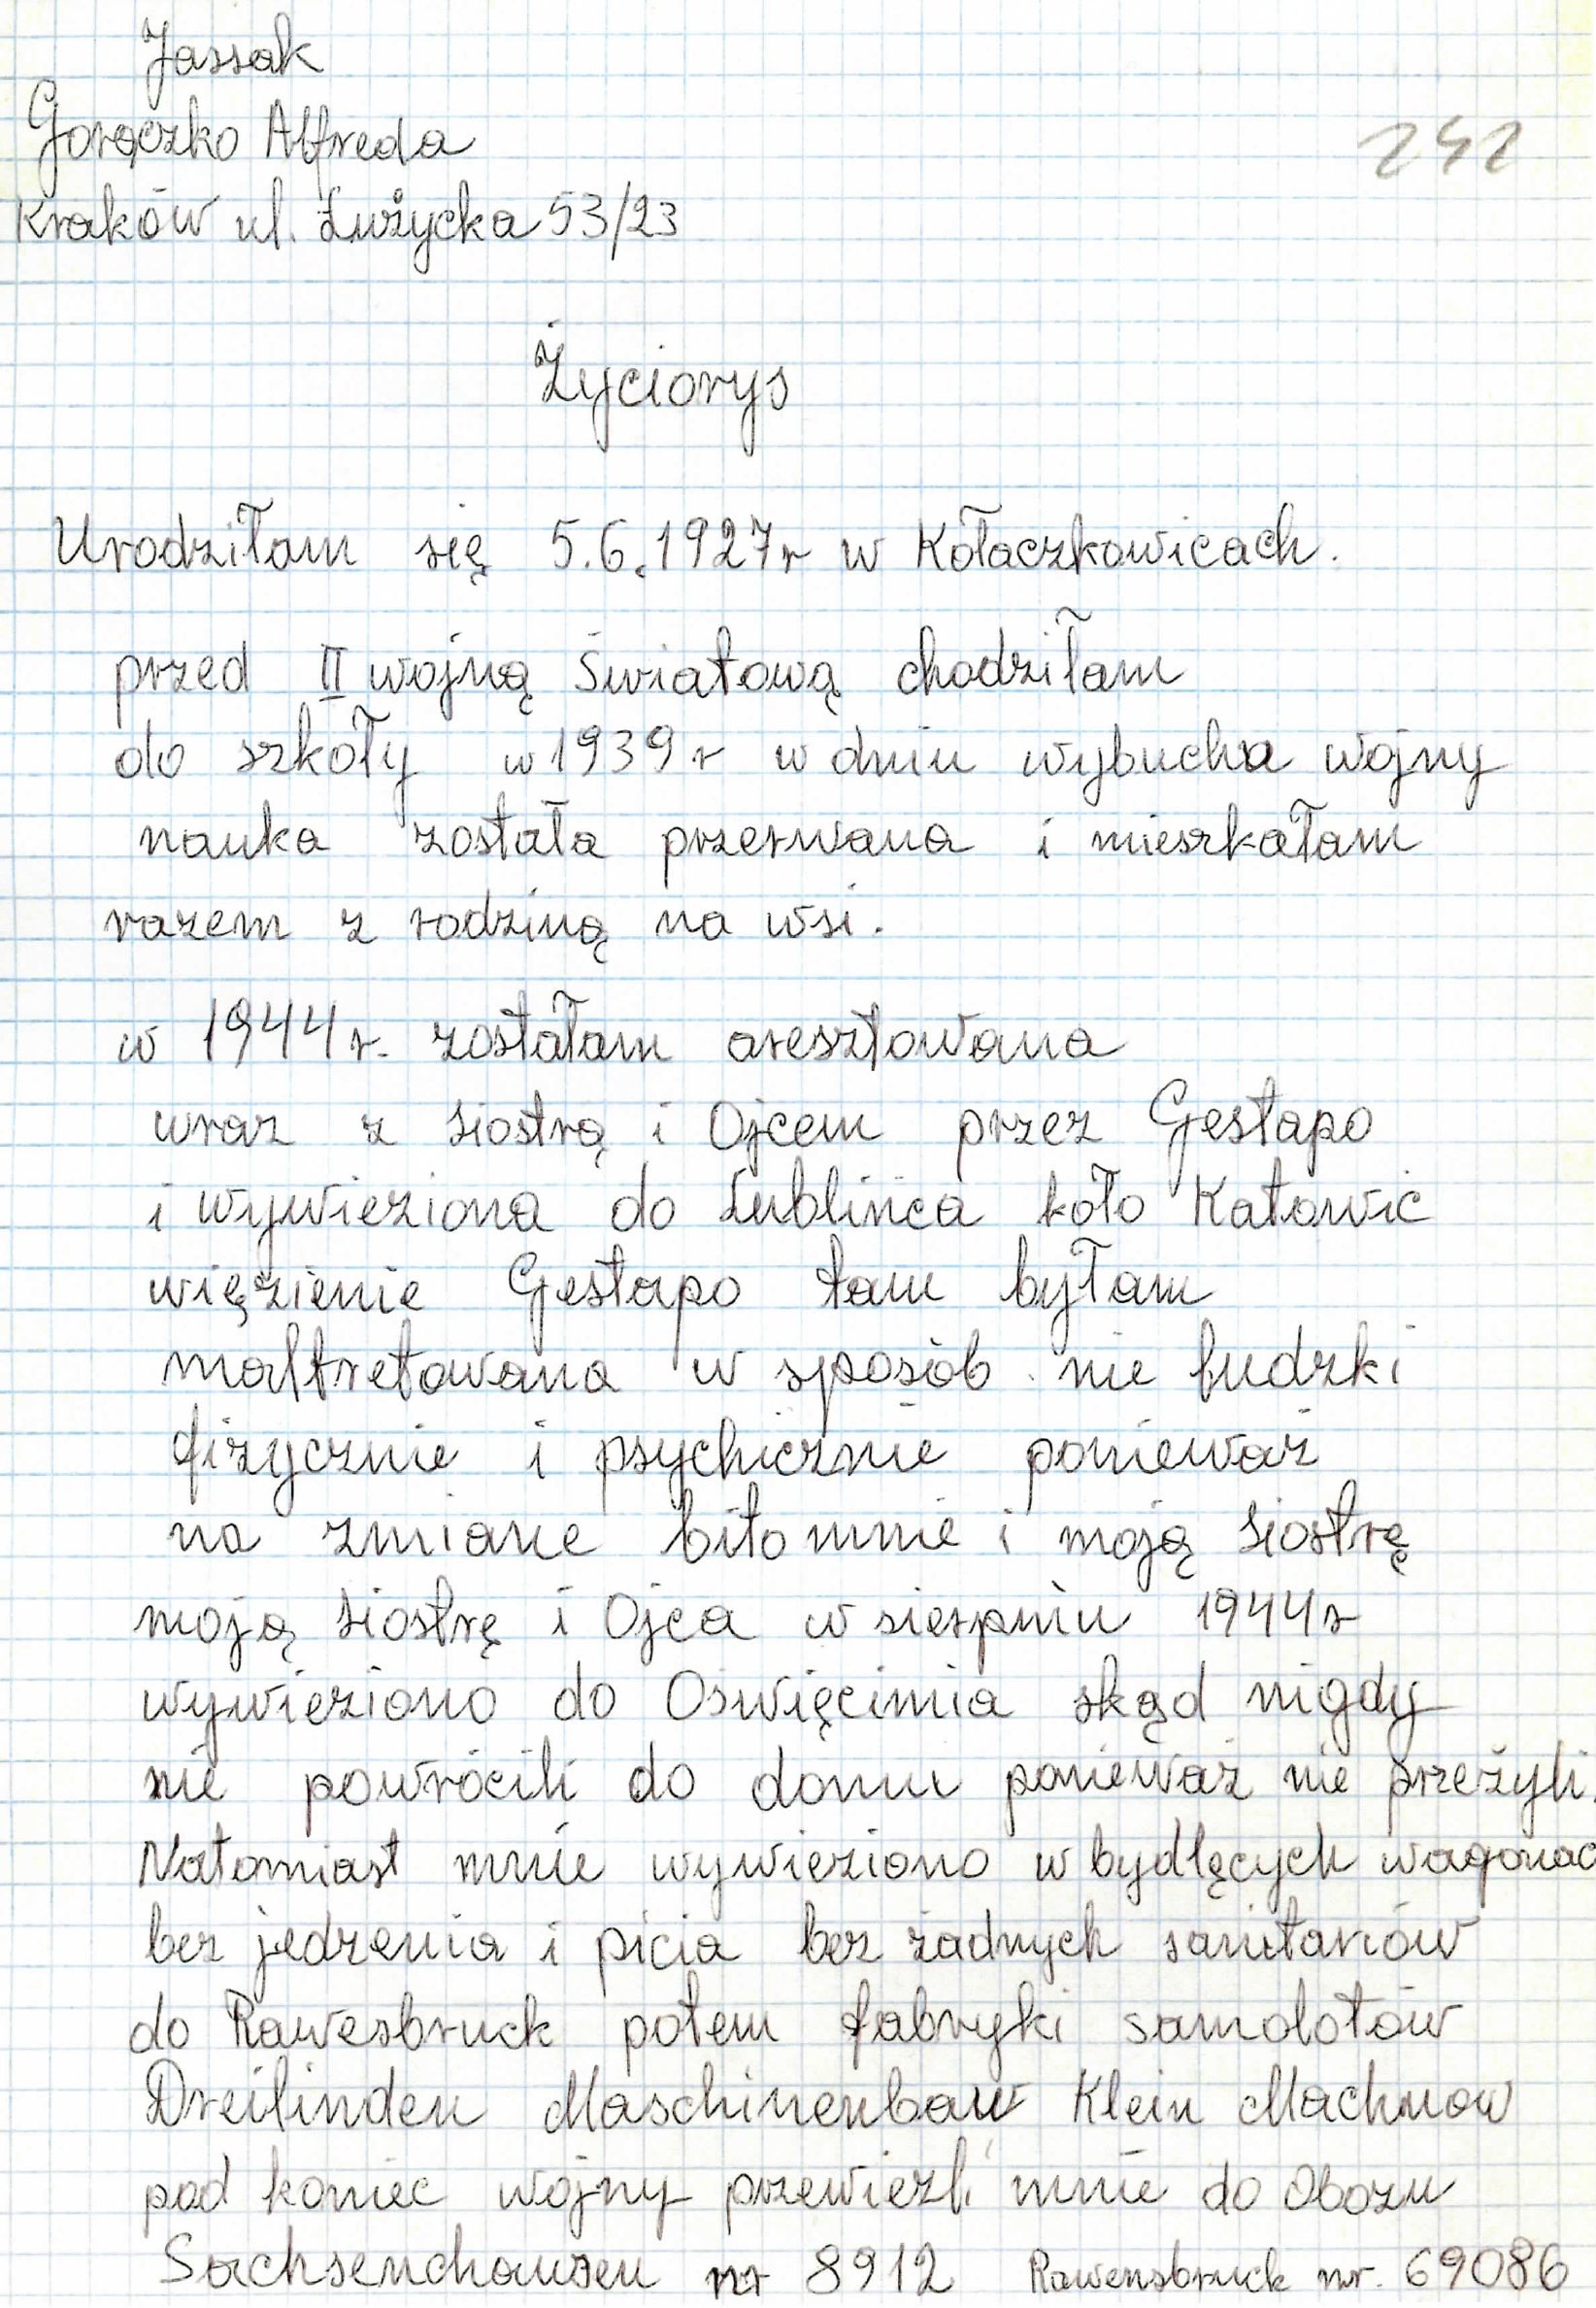 Jassak
Gorączko Alfreda
242
Kraków ul. Łużycka 53/23
Życiorys
Urodziłam się 5.6.1927r w Kołaczkowicach.
przed II wojną Światową chodziłam
do szkoły w 1939 r w dniu wybucha wojny
nauka została przerwana i mieszkałam
razem z rodziną na wsi.
w 1944 r. zostałam aresztowana
wraz z siostrą i Ojcem przez Gestapo
i wywieziona do Lublińca koło Katowic
więzienie Gestapo tam byłam
maltretowana w sposób nie ludzki
fizycznie i psychicznie ponieważ
na zmiane bito mnie i moją siostrę
moją siostrę i Ojca w sierpniu 1944r
wywieziono do Oswięcimia skąd nigdy
nie powrócili do domu ponieważ nie przeżyli.
Natomiast mnie wywieziono w bydlęcych wagonac
bez jedzenia i picia bez żadnych sanitariów
do Rawesbruck potem fabryki samolotów
Dreilinden Maschinenbaw Klein Machnow
pod koniec wojny przewieźli mnie do Obozu
Sachsenchausen nr 8912 Rawensbruck nr. 69086